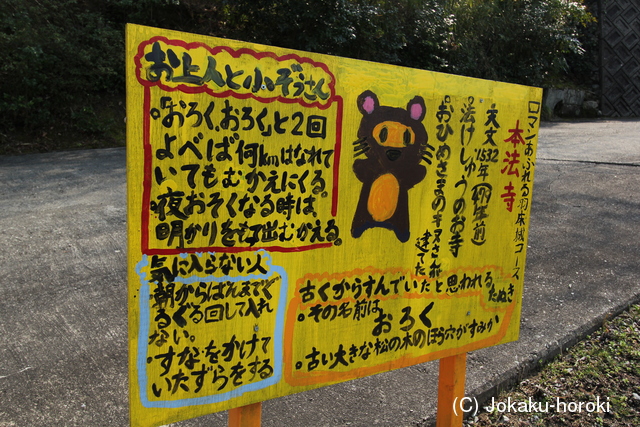 ロマンあふれる羽床城コース
本法寺
天文
1532年
法けしゅうのお寺
おひめさまの
建てた
お上人と小ぞうさん
・「おろく、おろく」と2回
よべば何kmはなれて
いてもむかえにくる。
・夜おそくなる時は、
明かりを
出むかえる。
古くからすんでいたと思われる
たぬき
・その名前は
おろく
・古い大きな松の木のほら穴がすみか
気に入らない人
・朝からばんまでぐ
るぐる回して入れ
ない。
・すなをかけて
いたずらをする
(C) Jokaku-horoki